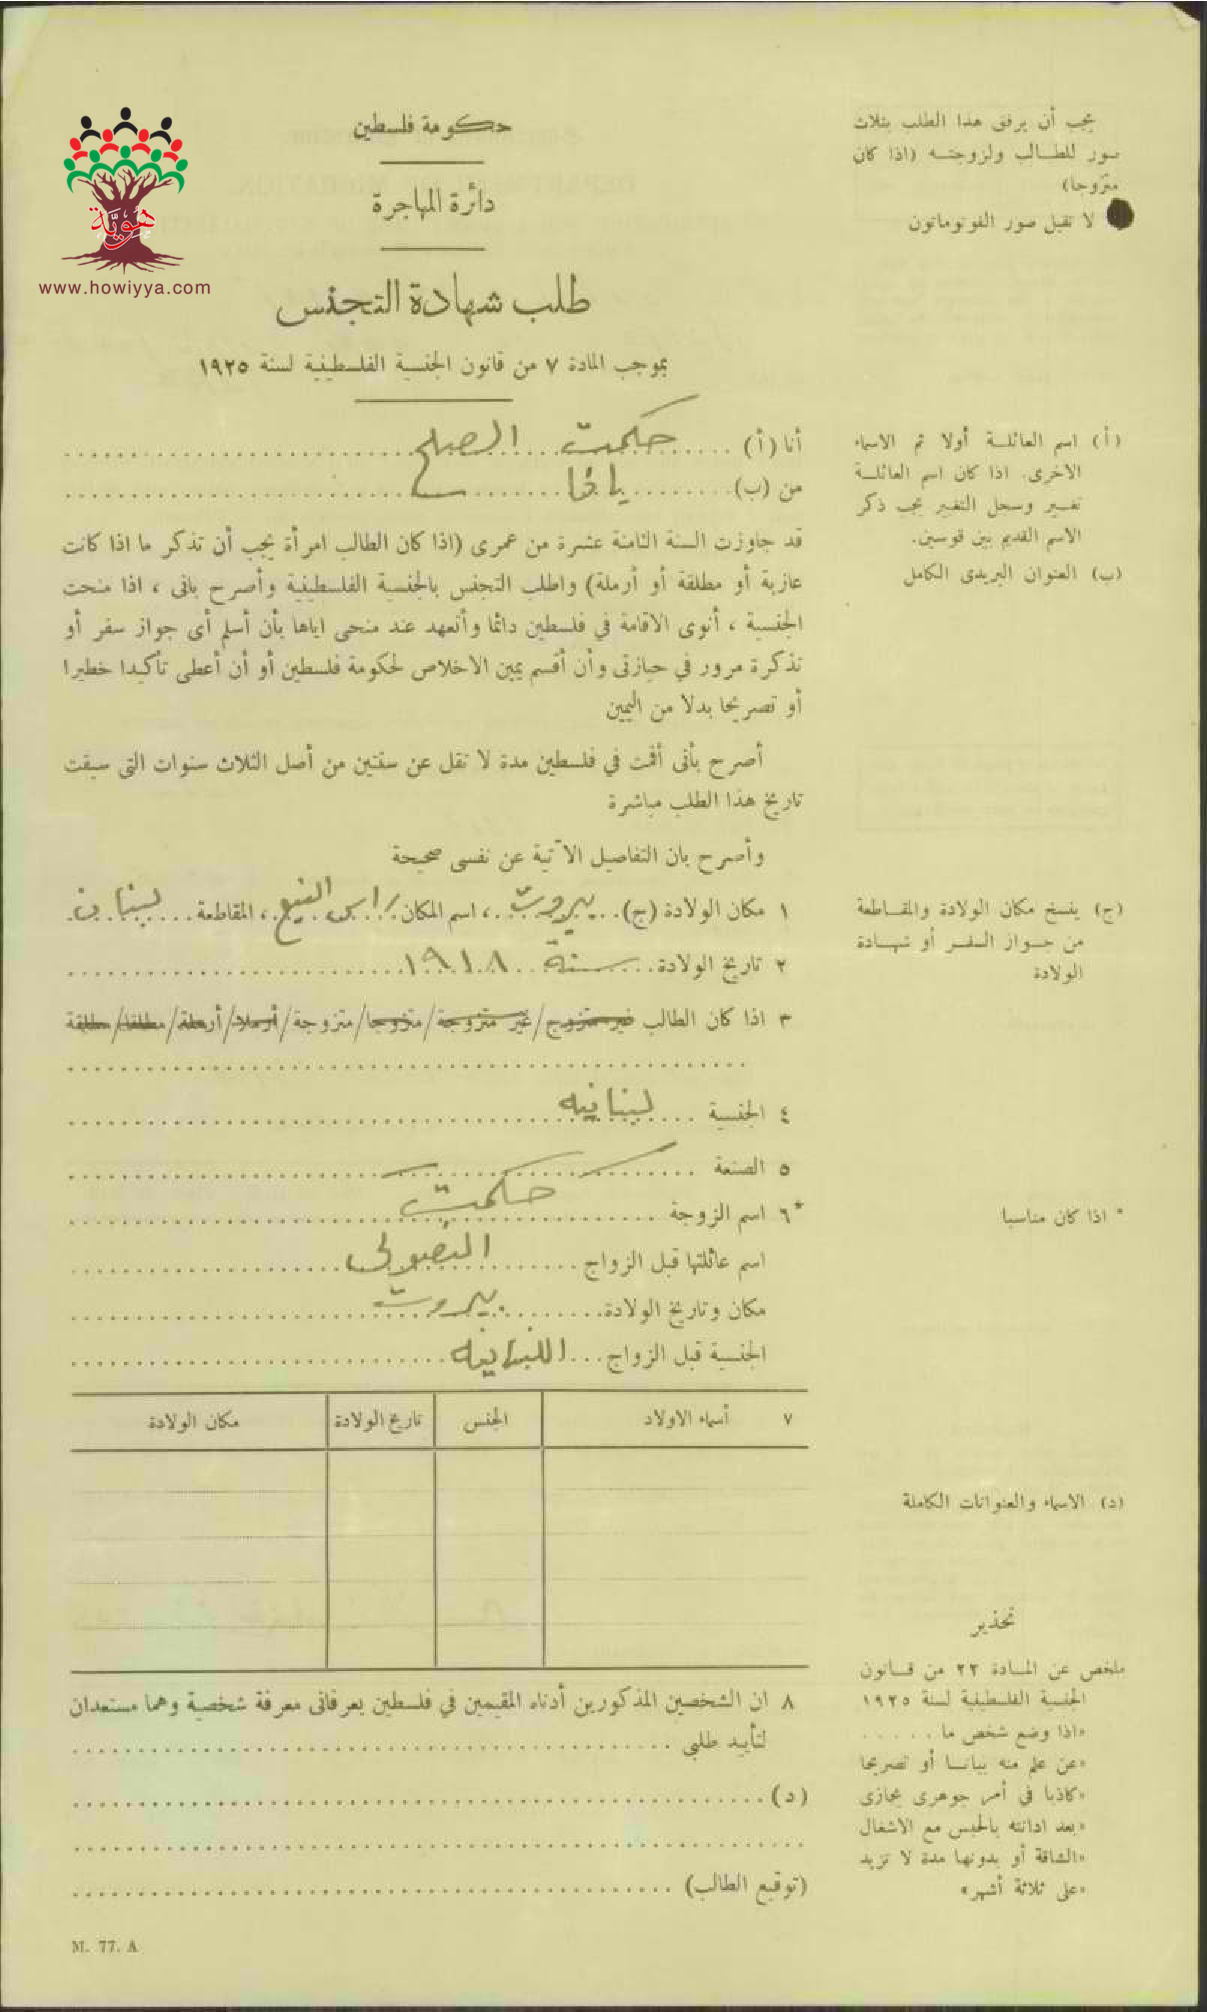 حكومة فلسطين
دائرة المهاجرة
طلب شهادة التجنس
بموجب المادة ٧ من قانون الجنسية الفلسطينية لسنة ١٩٢٥
هُويّة
www.howiyya.com
يجب أن يرفق هذا الطلب بثلاث
صور للطالب ولزوجته (اذا كان
متزوجا)
لا تقبل صور الفوتوماتون
أنا (أ) حكمت الصلح
من (ب) يافا
(أ) اسم العائلة أولا ثم الاسماء
الاخرى. اذا كان اسم العائلة
تغير وسجل التغير يجب ذكر
الاسم القديم بين قوسين.
(ب) العنوان البريدى الكامل
قد جاوزت السنة الثامنة عشرة من عمرى (اذا كان الطالب امرأة يجب أن تذكر ما اذا كانت
عازبة أو مطلقة أو أرملة) واطلب التجنس بالجنسية الفلسطينية وأصرح بانى ، اذا منحت
الجنسية ، أنوى الاقامة في فلسطين دائما وأتعهد عند منحى اياها بأن أسلم أى جواز سفر أو
تذكرة مرور في حيازتى وأن أقسم يمين الاخلاص لحكومة فلسطين أو أن أعطى تأكيدا خطيرا
أو تصريحا بدلا من اليمين
أصرح بأنى أقمت في فلسطين مدة لا تقل عن سنتين من أصل الثلاث سنوات التى سبقت
تاريخ هذا الطلب مباشرة
وأصرح بان التفاصيل الآتية عن نفسى صحيحة
١ مكان الولادة (ج) بيروت ، اسم المكان راس النبع ، المقاطعة لبنان
(ج) ينسخ مكان الولادة والمقاطعة
من جواز السفر أو شهادة
الولادة
٢ تاريخ الولادة سنة ١٩١٨
٣ اذا كان الطالب غير متزوج/غير متزوجة/متزوجا/متزوجة/أرملا/أرملة/مطلقا/مطلقة
٤ الجنسية لبنانيه
٥ الصنعة
*٦ اسم الزوجة حكمت
* اذا كان مناسبا
اسم عائلتها قبل الزواج
مكان وتاريخ الولادة بيروت
الجنسية قبل الزواج اللبنانيه
٧ أسماء الاولاد الجنس تاريخ الولادة مكان الولادة
(د) الاسماء والعنوانات الكاملة
تحذير
ملخص عن المادة ٢٢ من قانون
الجنسية الفلسطينية لسنة ١٩٢٥
«اذا وضع شخص ما . . . . . .
«عن علم منه بيانا أو تصريحا
«كاذبا في أمر جوهرى يجازى
«بعد ادانته بالحبس مع الاشغال
«الشاقة أو بدونها مدة لا تزيد
«على ثلاثة أشهر»
٨ ان الشخصين المذكورين أدناه المقيمين في فلسطين يعرفانى معرفة شخصية وهما مستعدان
لتأييد طلبى
(د)
(توقيع الطالب)
M. 77. A